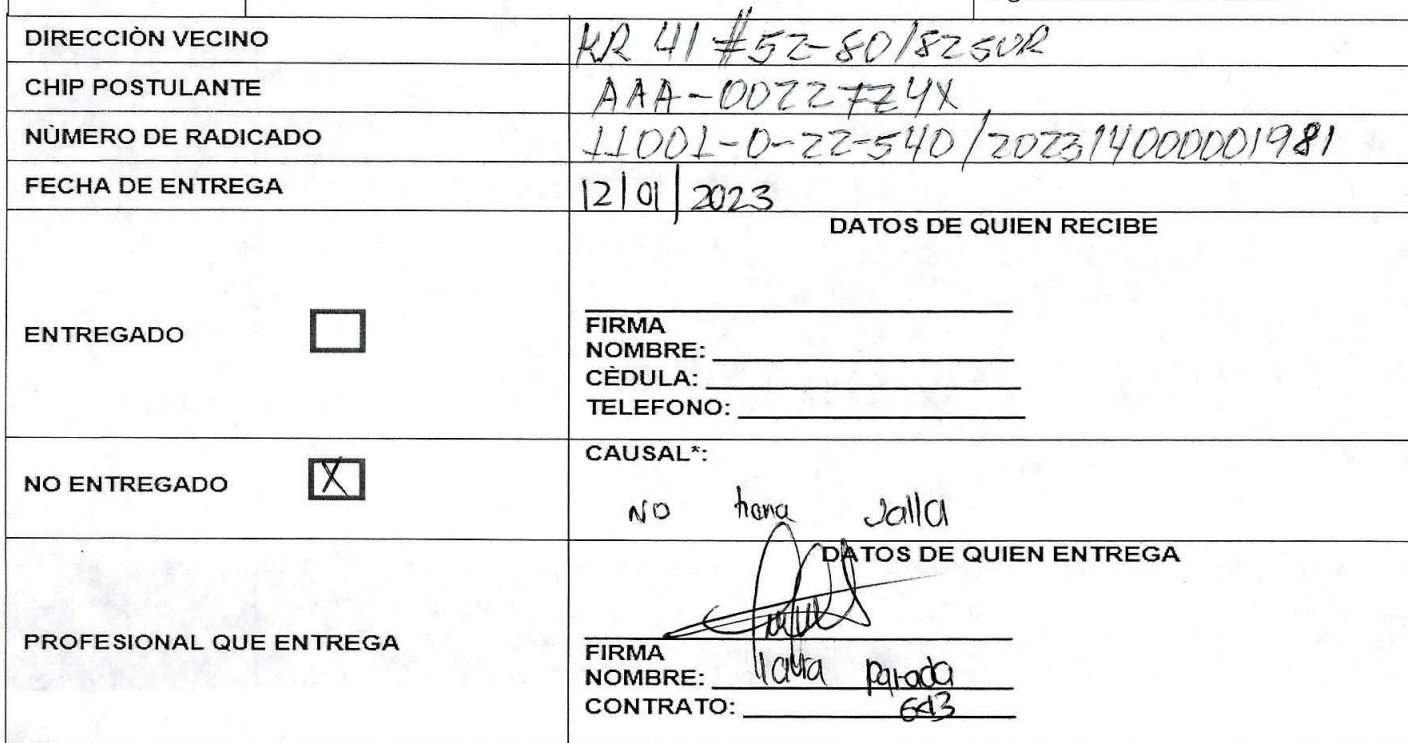 DIRECCIÒN VECINO KR 41 #52-80/82SUR
CHIP POSTULANTE AAA-00227Z4X
NÙMERO DE RADICADO 11001-0-22-540/20231400001981
FECHA DE ENTREGA 12|01|2023
DATOS DE QUIEN RECIBE
ENTREGADO
FIRMA
NOMBRE:
CÈDULA:
TELEFONO:
NO ENTREGADO X
CAUSAL*:
NO valla
DATOS DE QUIEN ENTREGA
PROFESIONAL QUE ENTREGA
FIRMA
NOMBRE: parada
CONTRATO: 643